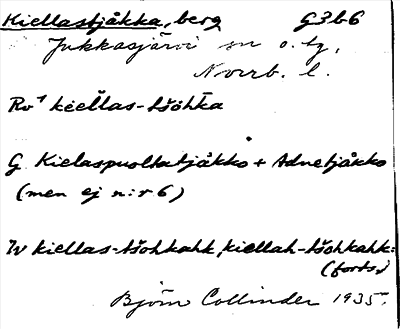 Kiellastjåkka, berg G3b6
Jukkasjärvi sn o. tg,
Norrb. l.
Rv⁴ kiellas-tšohka
G Kielaspuoltatjåkko + Adnetjåkko
(men ej n:r 6)
W kiellas-tšohkahk, kiellah-tšohkahk:
(forts.)
Björn Collinder 1935.